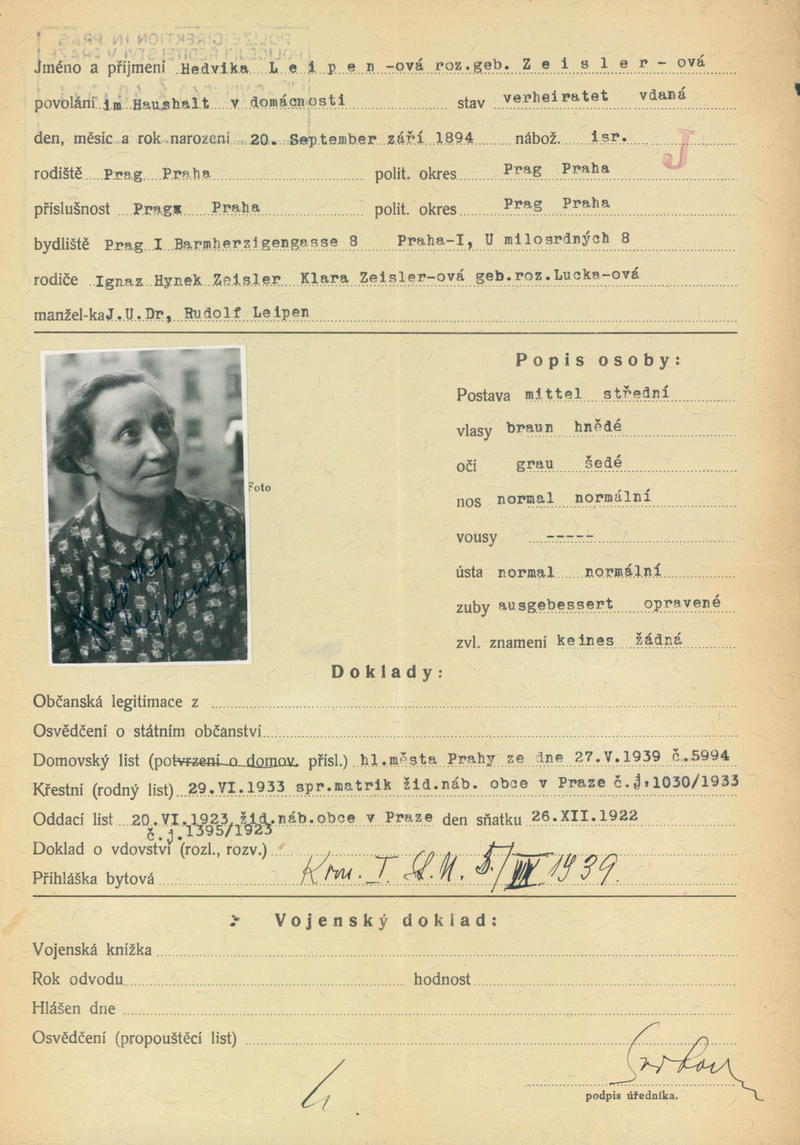 Jméno a příjmení Hedvika L e i p e n -ová roz.geb. Z e i s l e r - ová
povolání im Haushalt v domácnosti stav verheiratet vdaná
den, měsíc a rok narození 20. September září 1894 nábož. isr.
J
rodiště Prag Praha polit. okres Prag Praha
příslušnost Prag Praha polit. okres Prag Praha
bydliště Prag I Barmherzigengasse 8 Praha-I, U milosrdných 8
rodiče Ignaz Hynek Zeisler Klara Zeisler-ová geb.roz.Lucka-ová
manžel-ka J.U.Dr, Rudolf Leipen
Popis osoby:
Postava mittel střední
vlasy braun hnědé
oči grau šedé
Foto
nos normal normální
vousy -----
ústa normal normální
zuby ausgebessert opravené
zvl. znamení keines žádná
Doklady:
Občanská legitimace z
Osvědčení o státním občanství
Domovský list (potvrzení o domov. přísl.) hl.města Prahy ze dne 27.V.1939 č.5994
Křestní (rodný list) 29.VI.1933 spr.matrik žid.náb. obce v Praze č.j.1030/1933
Oddací list 20.VI.1923 žid.náb.obce v Praze den sňatku 26.XII.1922
č.j.1395/1923
Doklad o vdovství (rozl., rozv.)
Přihláška bytová 1939.
Vojenský doklad:
Vojenská knížka
Rok odvodu hodnost
Hlášen dne
Osvědčení (propouštěcí list)
podpis úředníka.